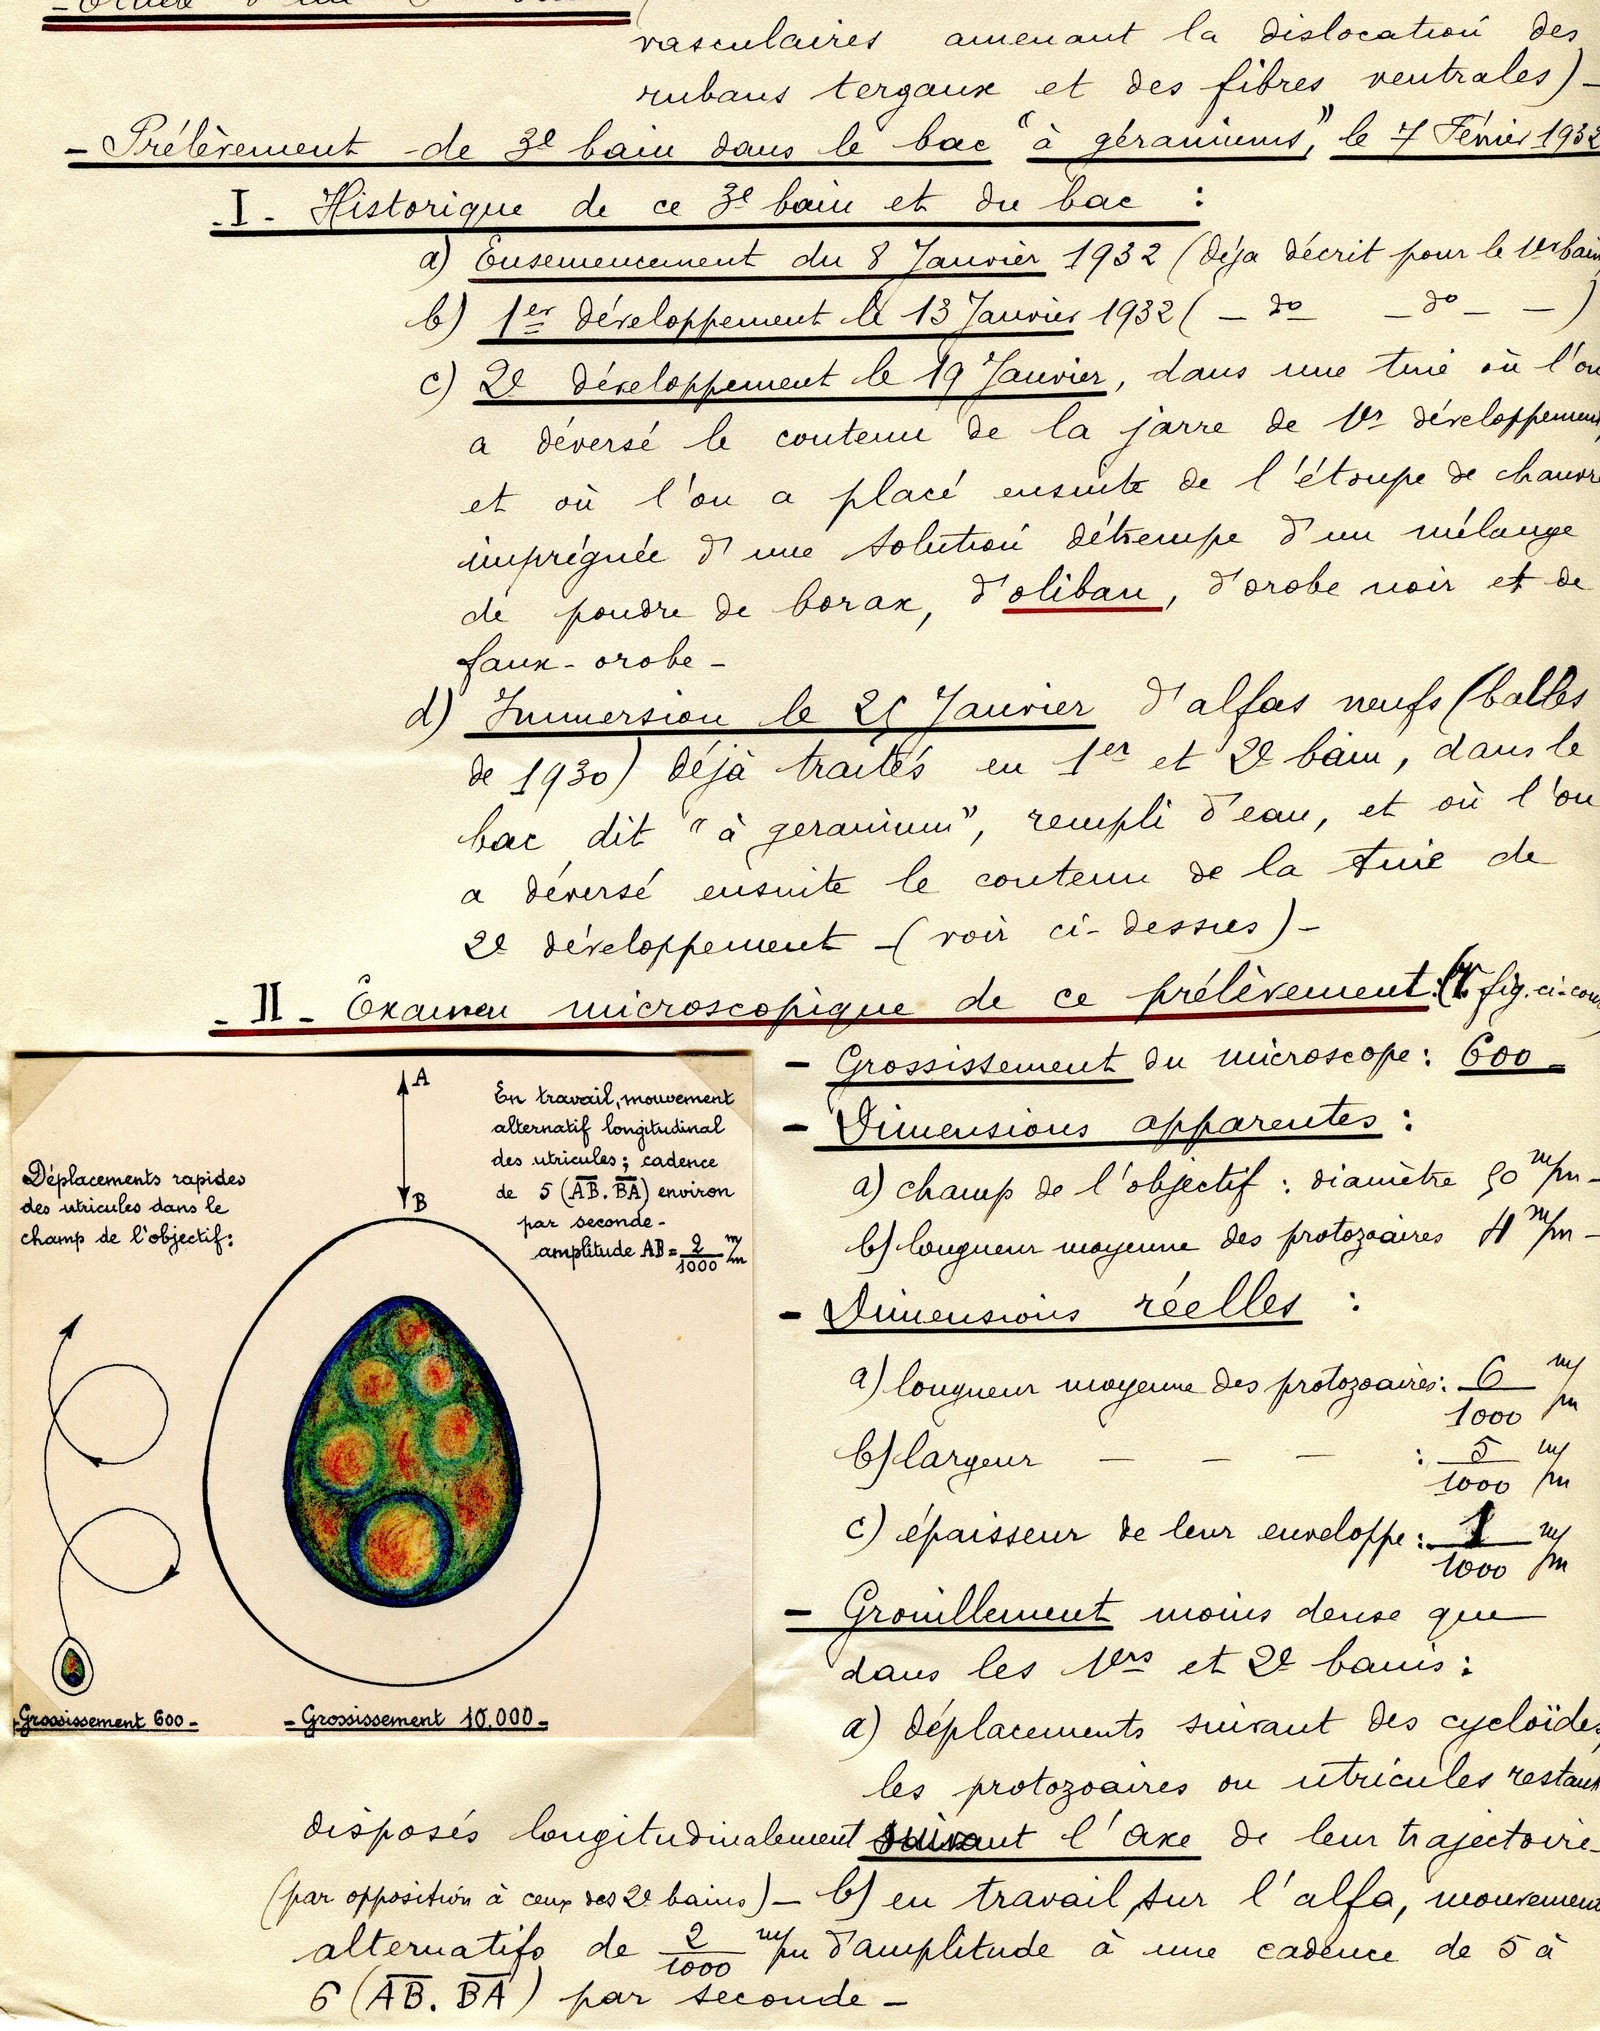 vasculaires amenant la dislocation des
rubans tergaux et des fibres ventrales) -
- Prélèvement de 3e bain dans le bac "à géraniums", le 7 Février 1932
- I - Historique de ce 3e bain et du bac :
a) Ensemencement du 8 Janvier 1932 (déja décrit pour le 1er bain
b) 1er développement le 13 Janvier 1932 ( - do - do - - )
c) 2e développement le 19 Janvier, dans une tine où l'on
a déversé le contenu de la jarre de 1er développement,
et où l'on a placé ensuite de l'étoupe de chanvre
imprégnée d'une solution détrempe d'un mélange
de poudre de borax, d'oliban, d'orobe noir et de
faux-orobe -
d) Immersion le Janvier d'alfas neufs (balles
de 1930) déjà traités en 1er et 2e bain, dans le
bac dit "à geranium", rempli d'eau, et où l'on
a déversé ensuite le contenu de la tine de
2e développement - (voir ci-dessus) -
- II - Examen microscopique de ce prélèvement. fig. ci-
- Grossissement du microscope : 600 -
- Dimensions apparentes :
a) champ de l'objectif : diamètre m/m -
b) longueur moyenne des protozoaires 4 m/m -
- Dimensions réelles :
a) longueur moyenne des protozoaires : 6/1000 m/m
b) largeur - - - : 5/1000 m/m
c) épaisseur de leur enveloppe : 1/1000 m/m
- Grouillement moins dense que
dans les 1ers et 2e bains :
a) déplacements suivant des cycloïdes,
les protozoaires ou utricules restant
disposés longitudinalement suivant l'axe de leur trajectoire -
(par opposition à ceux des 2e bains) - b) en travail, sur l'alfa, mouvement
alternatifs de 2/1000 m/m d'amplitude à une cadence de 5 à
6 (AB. BA) par seconde -
A
B
En travail, mouvement
alternatif longitudinal
des utricules ; cadence
de 5 (AB. BA) environ
par seconde -
amplitude AB = 2/1000 m/m
Déplacements rapides
des utricules dans le
champ de l'objectif :
- Grossissement 600 -
- Grossissement 10.000 -